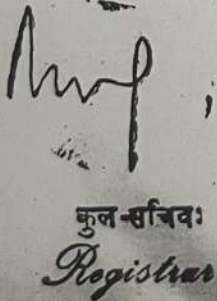 कुल-सचिवः
Registrar